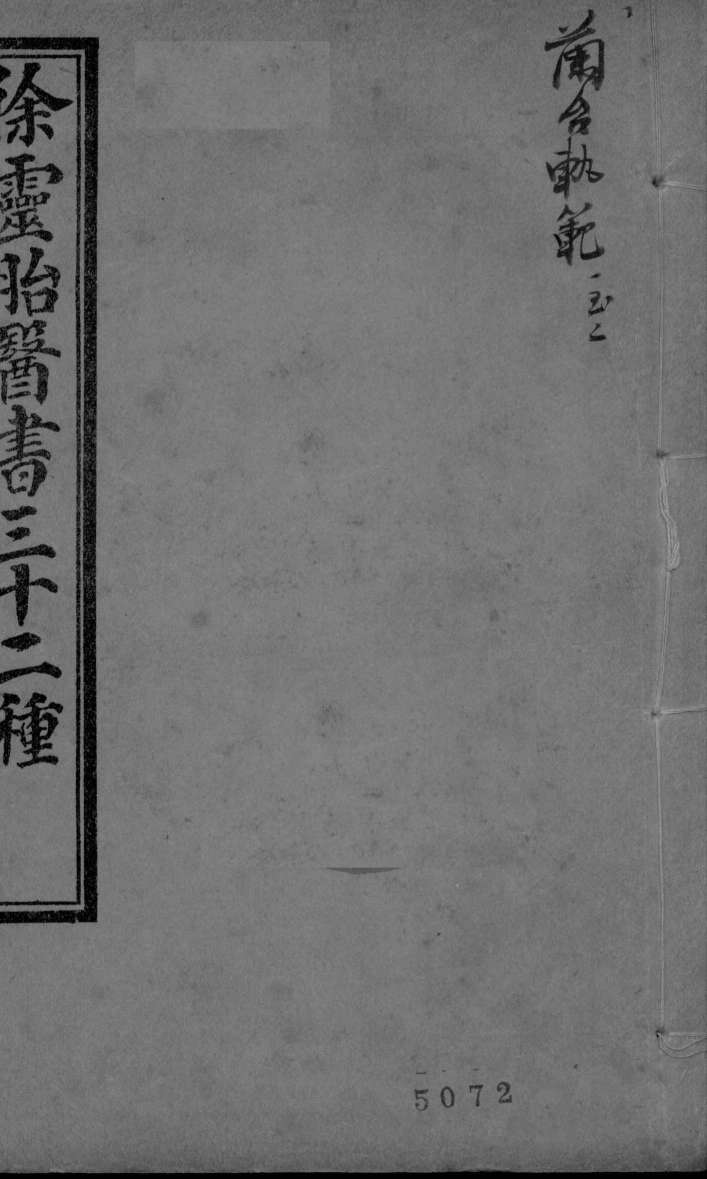 蘭台軌範 一至二
徐靈胎醫書三十二種
5072